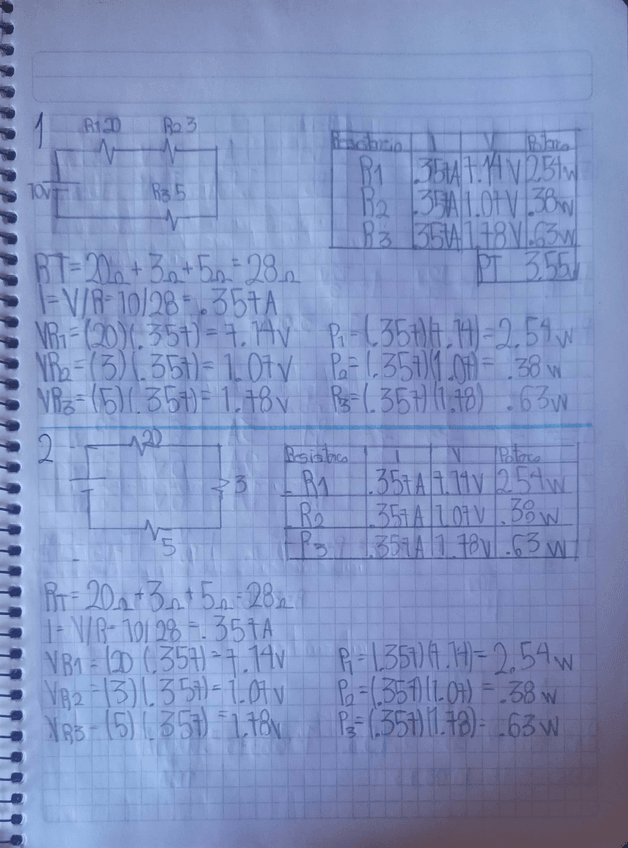 1
R1 20 R2 3
10V
R3 5
Resistencia I V Potencia
R1 .357A 7.14V 2.54w
R2 .357A 1.07V .38w
R3 .357A 1.78V .63w
PT 3.55
RT = 20Ω + 3Ω + 5Ω = 28Ω
I = V/R = 10/28 = .357A
VR1 = (20)(.357) = 7.14V P1 = (.357)(7.14) = 2.54w
VR2 = (3)(.357) = 1.07V P2 = (.357)(1.07) = .38w
VR3 = (5)(.357) = 1.78V P3 = (.357)(1.78) .63w
2
20
3
5
I V
R1 .357A 7.14V 2.54w
R2 .357A 1.07V .38w
R3 .357A 1.78V .63w
RT = 20Ω + 3Ω + 5Ω = 28Ω
I = V/R = 10/28 = .357A
VR1 = (20(.357) = 7.14V P1 = (.357)(7.14) = 2.54w
VR2 = (3)(.357) = 1.07V P2 = (.357)(1.07) = .38w
VR3 = (5)(.357) = 1.78V P3 = (.357)(1.78) = .63w